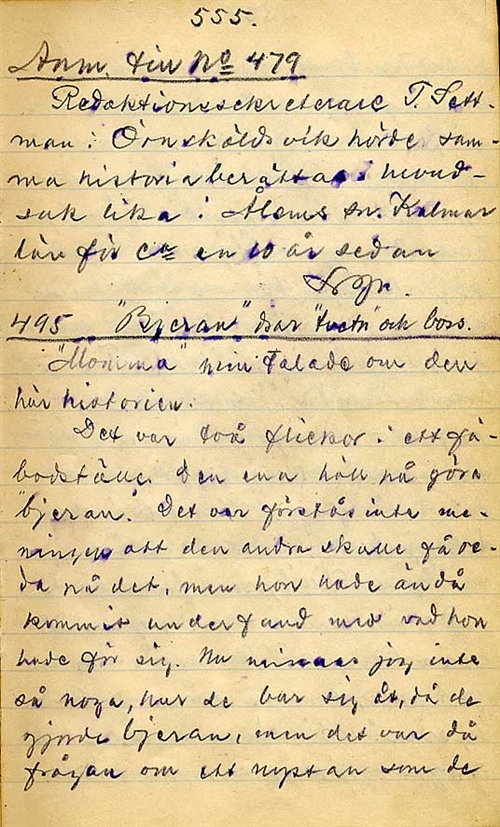 555.
Anm. till No 479
Redaktionssekreterare T. Sett-
man i Örnsköldsvik hörde sam-
ma historia berättas i huvud-
sak lika i Ålems sn. Kalmar
län för ca en 10 år sedan
495 "Bjeran" drar "tvetu" och boss.
"Momma" min talade om den
här historien:
Det var två flickor i ett fä-
bodställe. Den ena höll på göra
"bjeran". Det var förstås inte me-
ningen att den andra skulle få ve-
da på det, men hon hade ändå
kommit underfund med vad hon
hade för sig. Nu minnes jag inte
så noga, hur de bar sig åt, då de
gjorde bjeran, men det var då
frågan om ett nystan som de